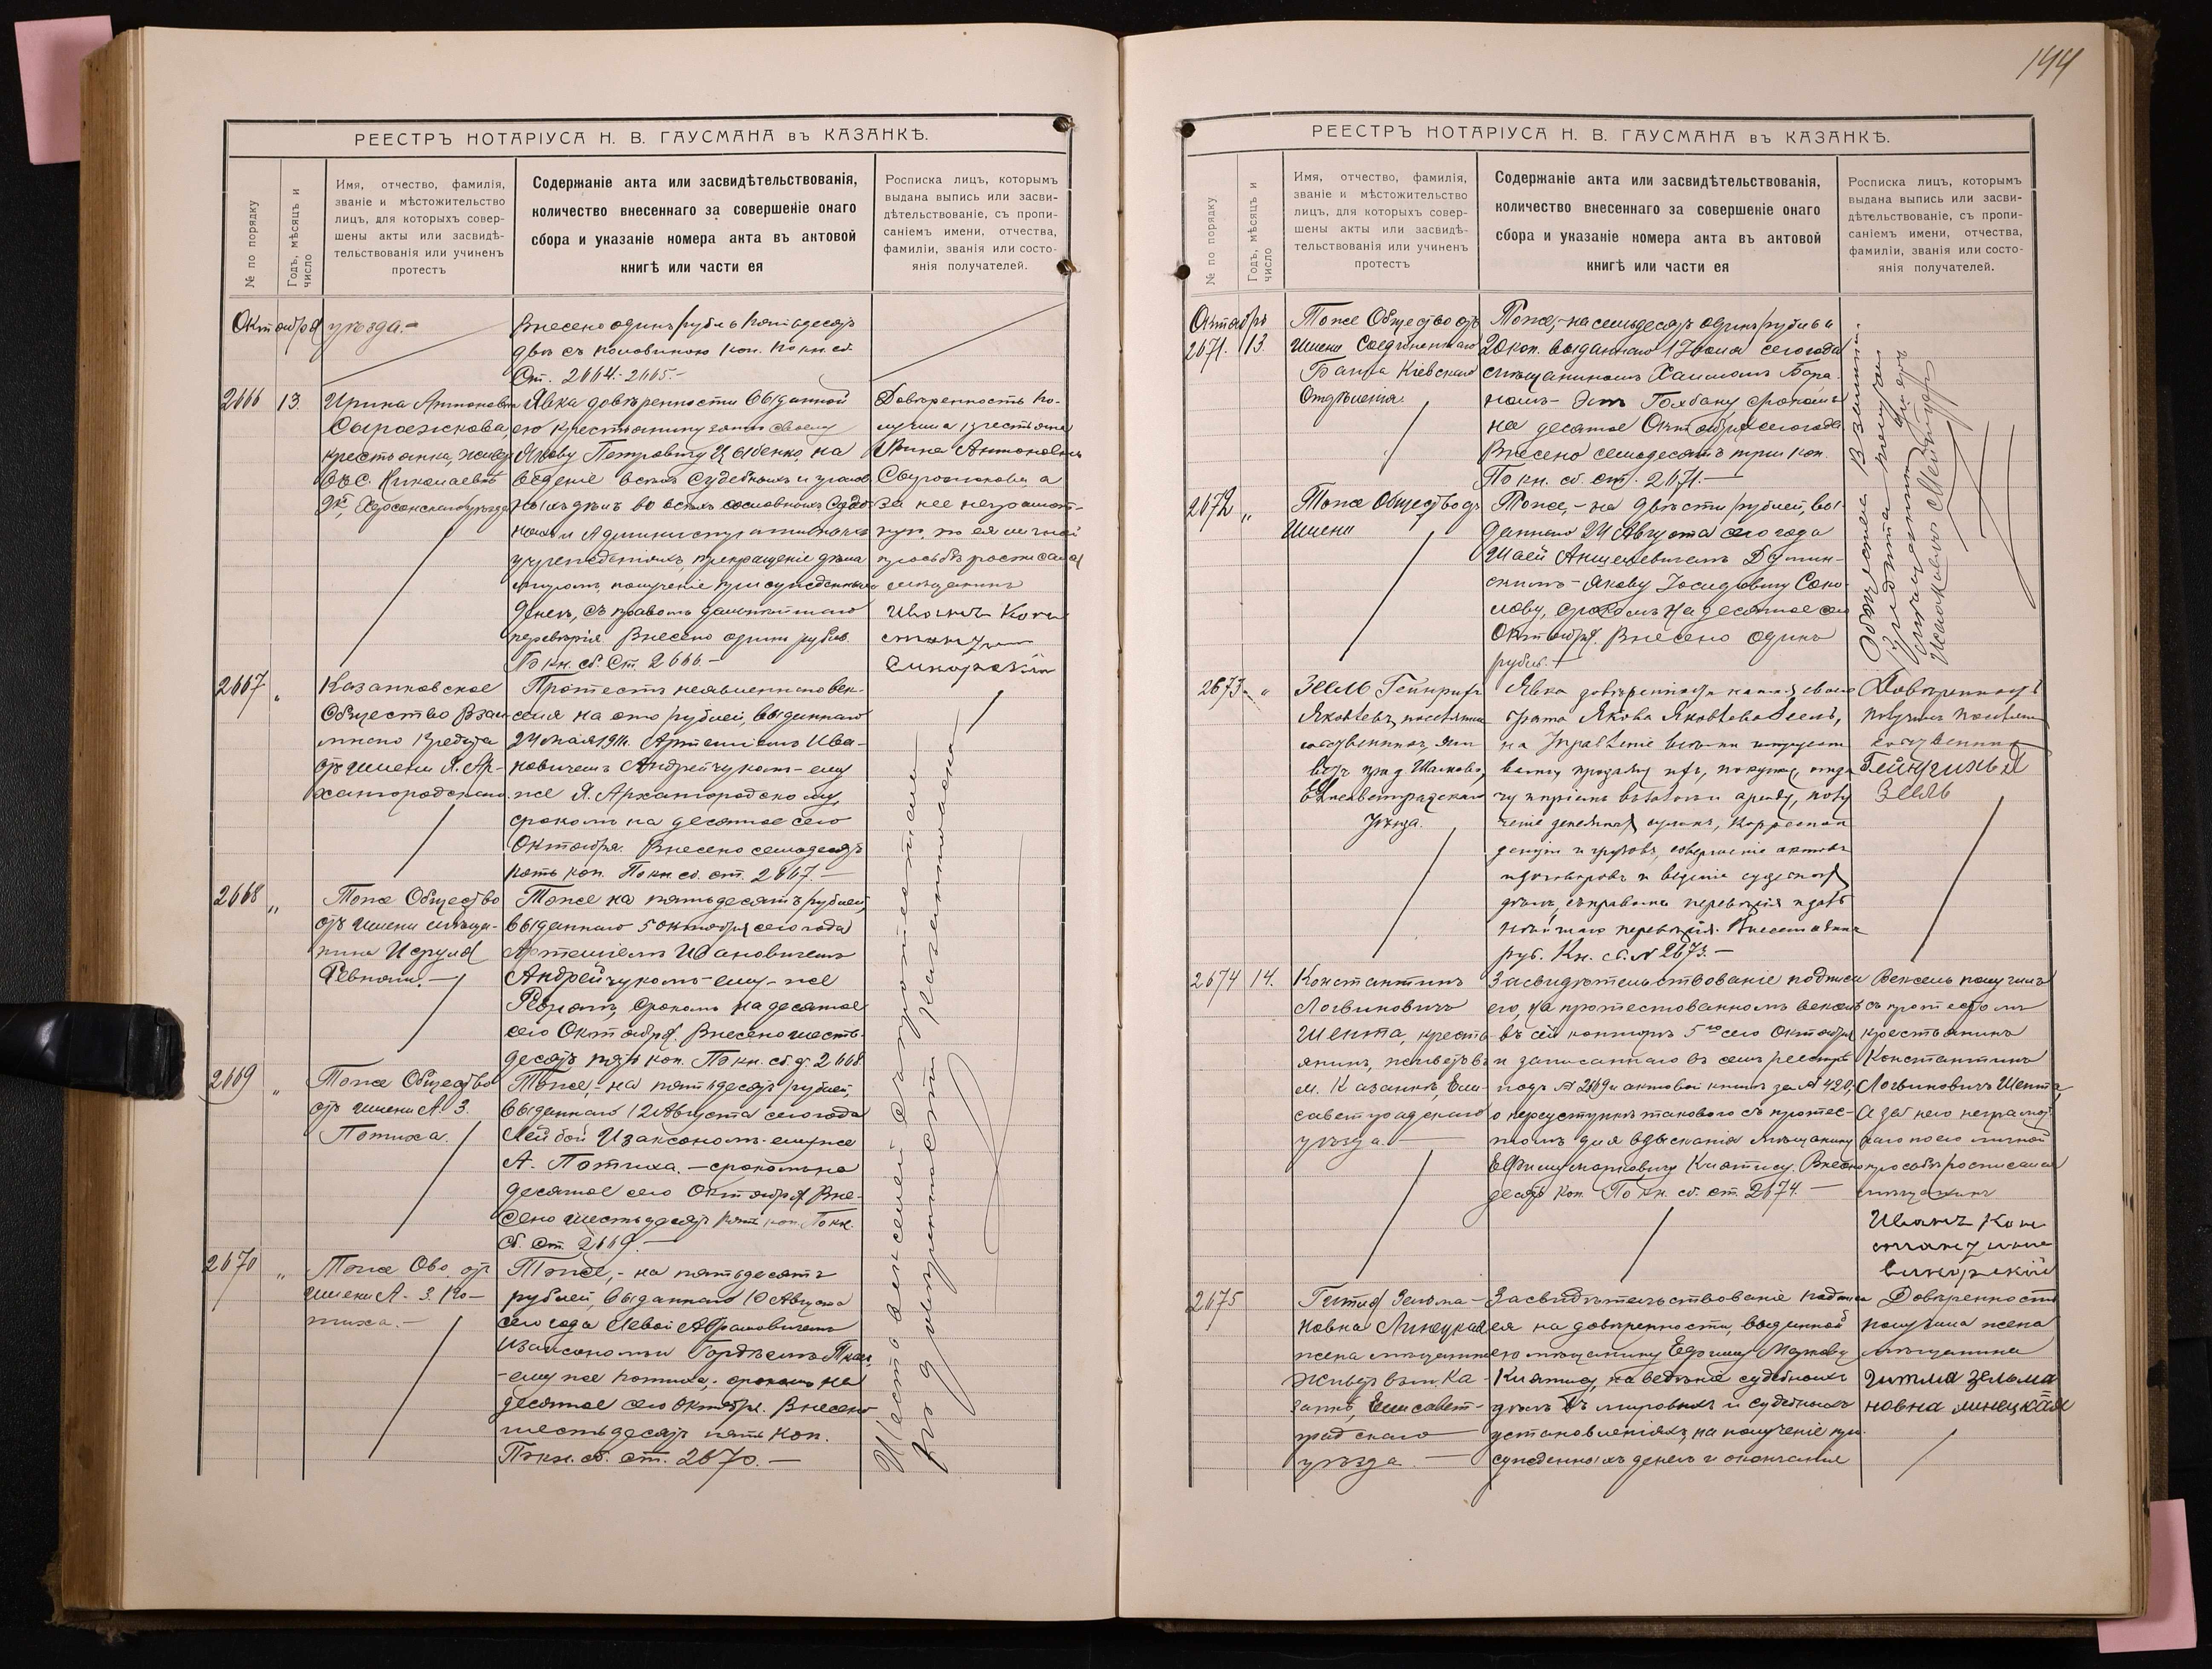 РЕЕСТРЪ НОТАРІУСА Н. В. ГАУСМАНА въ КАЗАНКѢ.
№ по порядку
Годъ, мѣсяцъ и
число
Имя, отчество, фамилія,
званіе и мѣстожительство
лицъ, для которыхъ совер-
шены акты или засвидѣ-
тельствованія или учиненъ
протестъ
Содержаніе акта или засвидѣтельствованія,
количество внесеннаго за совершеніе онаго
сбора и указаніе номера акта въ актовой
книгѣ или части ея
Росписка лицъ, которымъ
выдана выпись или засви-
дѣтельствованіе, съ пропи-
саніемъ имени, отчества,
фамиліи, званія или состо-
янія получателей.
Октября
уѣзда.-
Внесено одинъ рубль пятьдесятъ
два съ половиною коп. По кн. сб.
Ст. 2664-2665.-
2666
13
Ирина Антоновна
крестьянка, живу
въ с. Николаевкѣ
Херсонскаго уѣзда
Явка довѣренности выданной
ею крестьянину зятю своему
Якову Петровичу Цыбенко, на
веденіе всѣхъ судебныхъ и уголов
ныхъ дѣлъ во всѣхъ сословныхъ Судеб
ныхъ и Административныхъ
учрежденіяхъ, прекращеніе дѣла
миромъ, полученіе присужденныхъ
денегъ, съ правомъ дальнѣйшаго
перевѣрія. Внесено одинъ рубль.
По кн. сб. Ст. 2666.-
Довѣренность по-
лучила крестьянка
Ирина Антоновна
а
за нее неграмот-
ную, по ея личной
просьбѣ росписался
мѣщанинъ
Иванъ Кон
стантин
Сикорскій
2667
"
Казанковское
Общество Взаи
мнаго Кредита
отъ имени Я. Ар-
хангородскаго.
Протестъ неявленнаго век-
селя на сто рублей, выданнаго
24 мая 1911. Артеміемъ Ива-
новичемъ Андрейчукомъ- ему
же Я. Архангородскому,
срокомъ на десятое сего
Октября. Внесено семьдесятъ
пять коп. По кн. сб. ст. 2667.-
2668
"
Тоже Общество
отъ имени мѣща-
нина Исруля
Ревнаго.-
Тоже на пятьдесятъ рублей,
выданнаго 5 октября сего года
Артеміемъ Ивановичемъ
Андрейчукомъ- ему-же
срокомъ на десятое
сего Октября. Внесено шесть-
десятъ пять коп. По кн. сб. ст. 2668.
2669
"
Тоже Общество
отъ имени А. З.
Потиха.
Тоже,- на пятьдесятъ рублей,
выданнаго 12 Августа сего года
Лейбой Изаксономъ- ему же
А. Потиха.- срокомъ на
десятое сего Октября. Вне-
сено шестьдесятъ пять коп. По кн.
сб. ст. 2669.-
2670
"
Тоже Обо. отъ
имени А. З. По-
тиха.-
Тоже,- на пятьдесятъ
рублей, выданнаго 10 Августа
сего года Левой Абрамовичемъ
Изаксономъ и
-ему же Потиха,- срокомъ на
десятое сего Октября. Внесено
шестьдесятъ пять коп.
По кн. сб. ст. 2670.-
144
РЕЕСТРЪ НОТАРІУСА Н. В. ГАУСМАНА въ КАЗАНКѢ.
№ по порядку
Годъ, мѣсяцъ и
число
Имя, отчество, фамилія,
званіе и мѣстожительство
лицъ, для которыхъ совер-
шены акты или засвидѣ-
тельствованія или учиненъ
протестъ
Содержаніе акта или засвидѣтельствованія,
количество внесеннаго за совершеніе онаго
сбора и указаніе номера акта въ актовой
книгѣ или части ея
Росписка лицъ, которымъ
выдана выпись или засви-
дѣтельствованіе, съ пропи-
саніемъ имени, отчества,
фамиліи, званія или состо-
янія получателей.
Октябрь
2671.
13.
Тоже Общество отъ
имени Соединеннаго
Банка Кіевскаго
Отдѣленія.
Тоже,- на семьдесятъ одинъ рубль и
20 коп. выданнаго 1 Іюля сего года
мѣщаниномъ Хаимомъ Бара
срокомъ
на десятое Октября сего года
Внесено семьдесятъ три коп.
По кн. сб. ст. 2671.-
2672
"
Тоже Общество отъ
имени
Тоже,- на двѣсти рублей, вы-
даннаго 24 Августа сего года
Якову Іосифовичу Соко-
лову, срокомъ на десятое сего
Октября. Внесено одинъ
рубль.
2673
"
Зеель Гейнрихъ
Яковлевъ, поселянинъ
собственникъ, жив
Елисаветградскаго
уѣзда.
брата Якова Яковлева Зеель,
на управленіе всѣмъ имущест
вомъ, продажу его, покупку, отда
ченіе денежныхъ суммъ, корреспон
денціи и грузовъ, совершеніе актовъ
и договоровъ и веденіе судебныхъ
дѣлъ, съ правомъ перевѣрія и даль
нѣйшаго перевѣрія. Внесено одинъ
руб. Кн. сб. № 2673.-
Довѣренность
получилъ поселян
собственникъ
Гейнрихъ Я
Зеель
2674
14.
Константинъ
Логвиновичъ
Шепта, кресть
янинъ, живетъ въ
м. Казанкѣ, Ели-
саветградскаго
уѣзда.-
Засвидѣтельствованіе подписи
его, на протестованномъ векселѣ
въ сей конторѣ 5го сего Октября
и записаннаго въ семъ реестрѣ
подъ № 2609 и актовой книгѣ за № 420,
о переуступкѣ таковаго съ протес-
томъ для взысканія мѣщанину
Ефиму Марковичу Книтису. Внесено
десять коп. По кн. сб. ст. 2674.-
Вексель получилъ
съ протестомъ
крестьянинъ
Константинъ
Логвиновичъ Шепта,
А за него неграмот
наго по его личной
просьбѣ росписался
мѣщанинъ
Иванъ Кон
стантинов
Сикорскій
2675
Гитля Зельма-
новна Линецкая
жена мѣщанина
живетъ въ м. Ка-
занкѣ, Елисавет-
градскаго
уѣзда.-
Засвидѣтельствованіе подписи
ея на довѣренности, выданной
ею мѣщанину Ефиму Маркову
Книтису, на веденіе судебныхъ
дѣлъ въ мировыхъ и судебныхъ
установленіяхъ, на полученіе при-
сужденныхъ денегъ и окончаніе
Довѣренность
получила жена
мѣщанина
гитля зельма
новна линецкая
Шесть векселей съ протестами